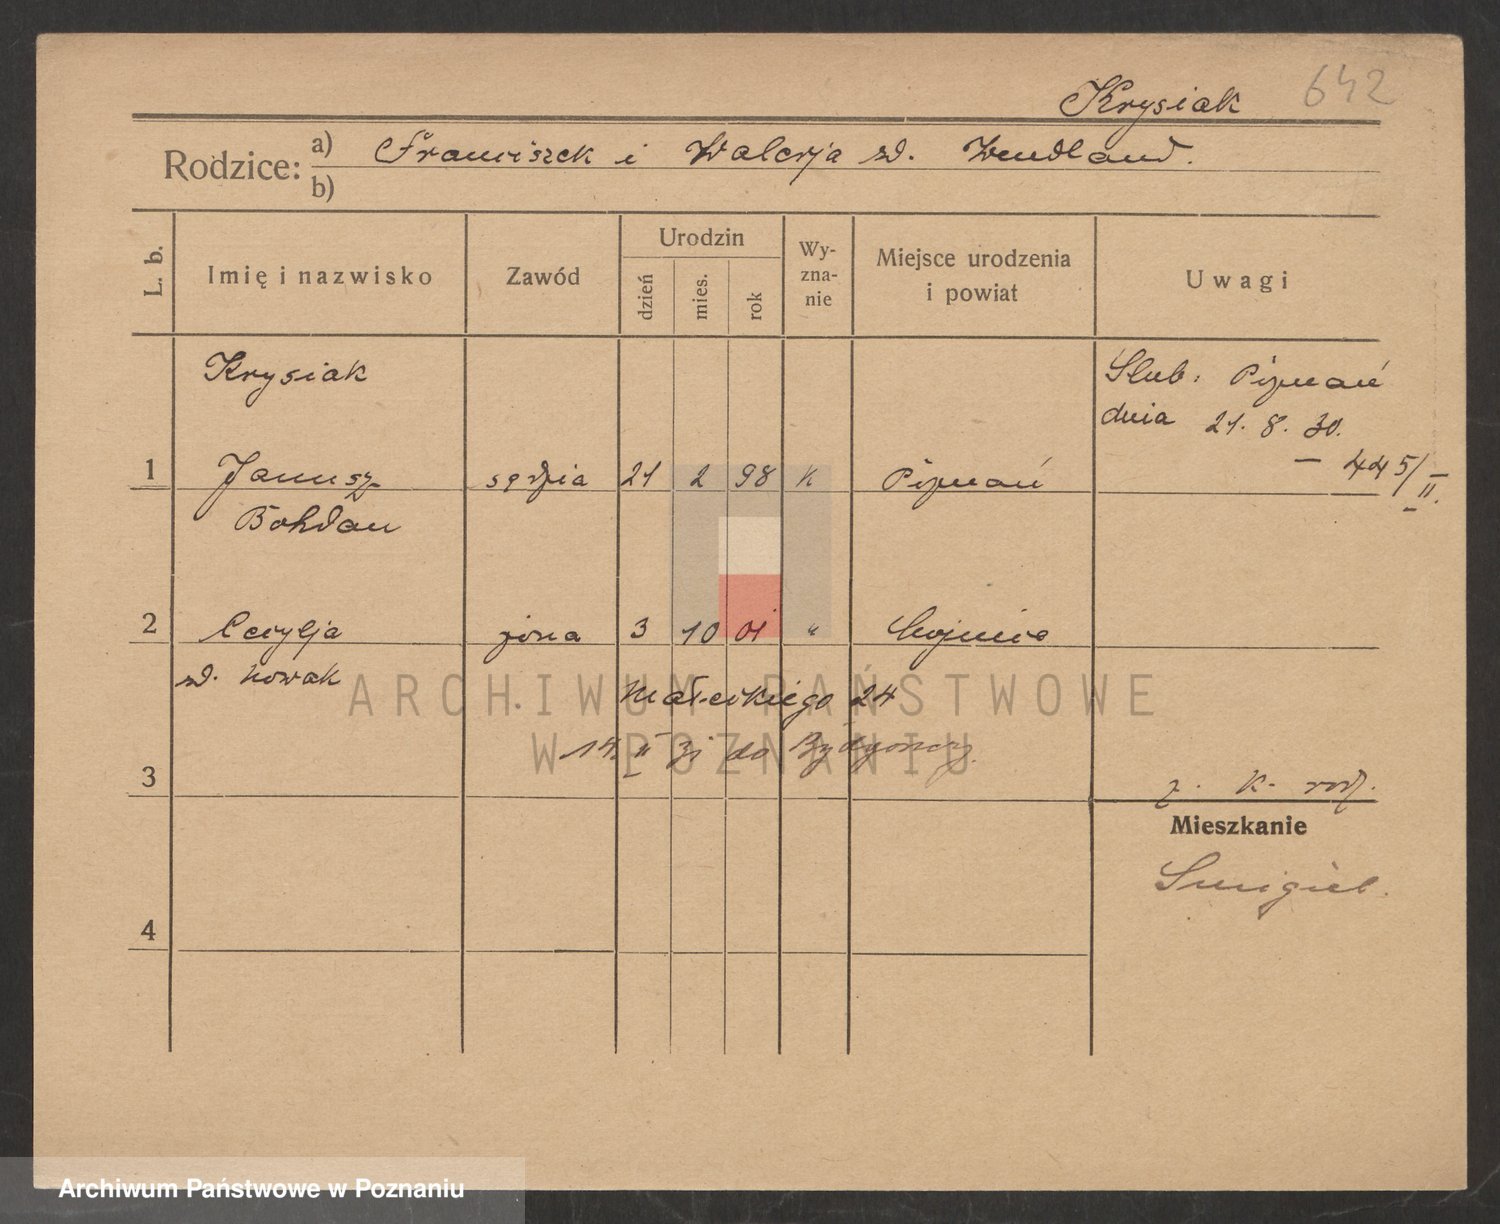 Krysiak 642
Rodzice: a) Franciszek i Walerja zd. Wendland.
b)
L. b. Imię i nazwisko Zawód Urodzin dzień mies. rok Wy-zna-nie Miejsce urodzenia i powiat Uwagi
Krysiak Ślub: Poznań
dnia 21. 8. 30.
— 445/II.
1 Janusz sędzia 21 2 98 k Poznań
Bohdan
2 Cecylja żona 3 10 01 " Chojnice
zd. Nowak
Małeckiego 24
ARCHIWUM PAŃSTWOWE
W POZNANIU
14 II 31 do Bydgoszczy.
3 z. K. rodz.
Mieszkanie
Śmigiel.
4
Archiwum Państwowe w Poznaniu